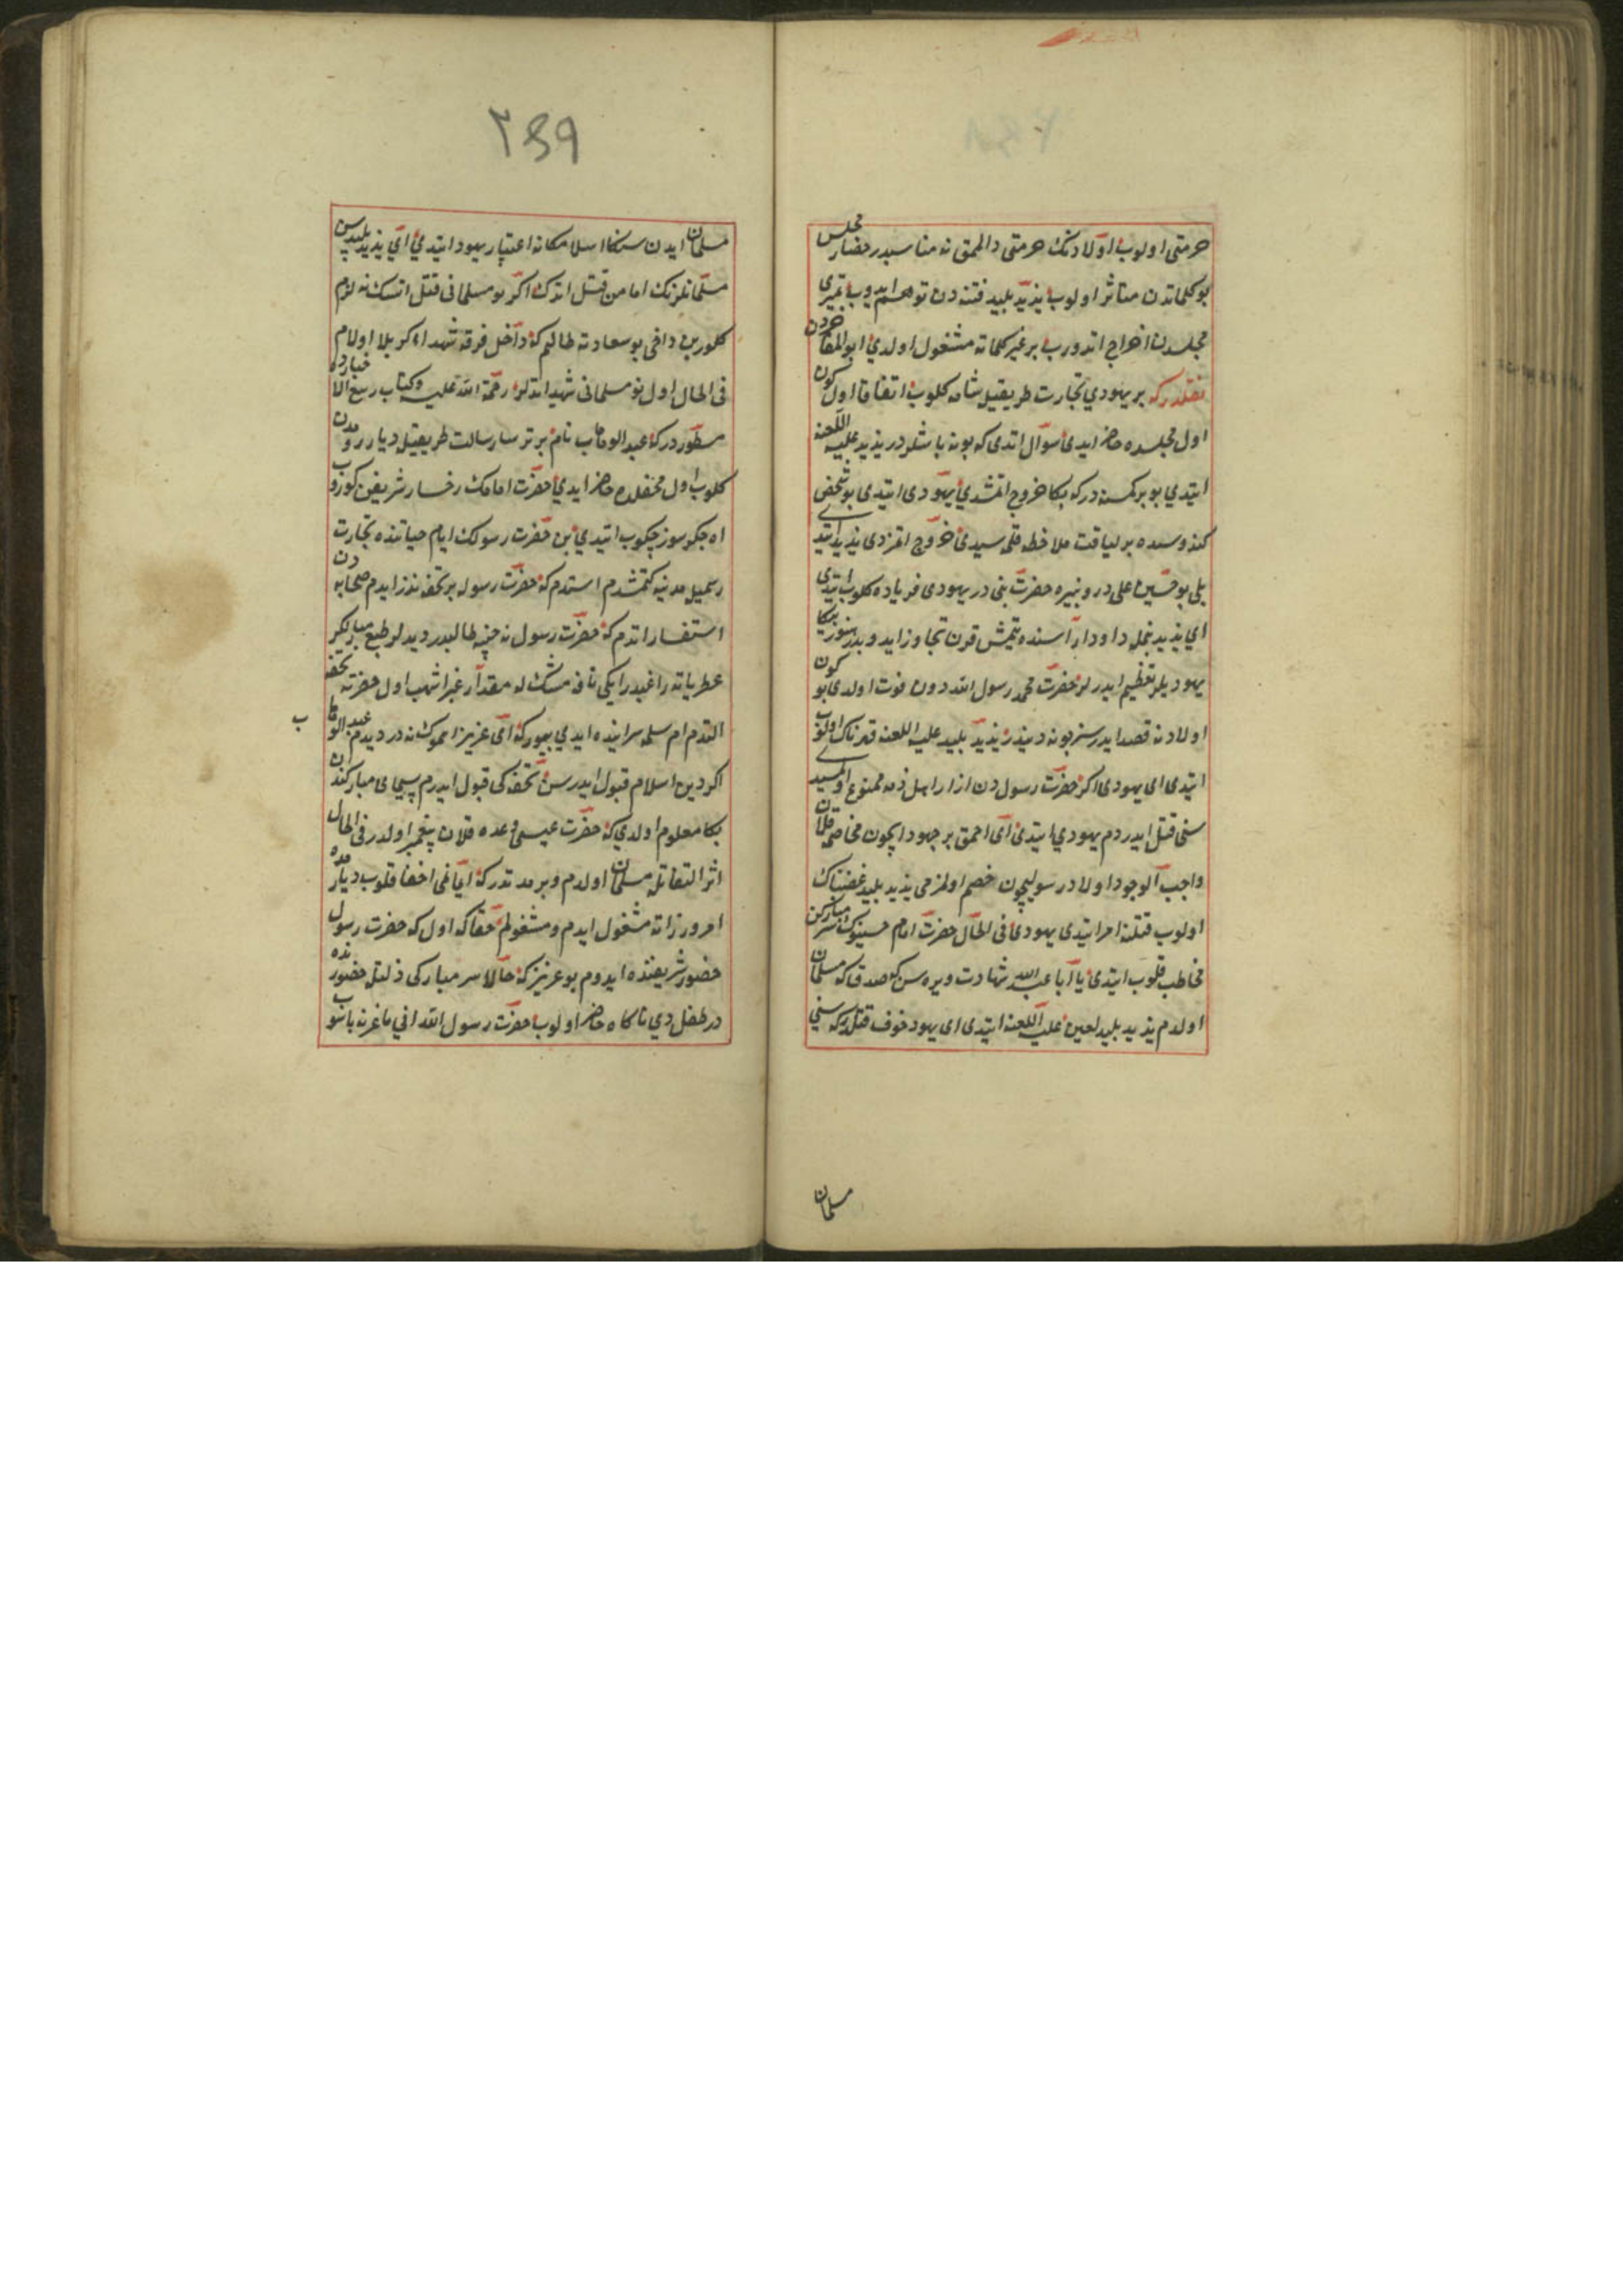 حرمتی اولوب اولادنك حرمتی دالمق نه مناسبدر حضار مجلس
بو كلماتدن متاثر اولوب یزید بلید فتنه دن توهم ایدوب
مجلسدن اخراج اتدورب بر غیر كلماته مشغول اولدی ابو المفاخردن
نقلدر كه بر یهودی تجارت طریقیله شامه كلوب اتفاقا اول كون
اول مجلسده حاضر ایدی سوال اتدی كه بو نه باشلردر یزید علیه اللعنه
ایتدی بو بر كمسنه در كه بكا خروج اتمشدی یهودی ایتدی بو شخص
كندوسنده بر لیاقت ملاحظه قلمه سیدی خروج اتمزدی یزید ایتدی
بلی بو حسین علی در و نبیره حضرت نبی در یهودی فریاده كلوب ایتدی
ای یزید بنمله داود اراسنده یتمش قرن تجاوز ایدوبدر هنوز بكا
یهودیلر تعظیم ایدرلر حضرت محمد رسول الله دون فوت اولدی بو كون
اولادنه قصد ایدرسز بو نه دیندر یزید بلید علیه اللعنه قهرناك اولوب
ایتدی ای یهودی اكر حضرت رسول دن ازار اهل ذمه ممنوع اولمسیدی
سنی قتل ایدردم یهودی ایتدی ای احمق بر جهود ایچون مخاصمه قلان
واجب الوجود اولاد رسولیچون خصم اولمزمی یزید بلید غضبناك
اولوب قتلنه امر ایتدی یهودی فی الحال حضرت امام حسینوك سر مباركن
مخاطب قلوب ایتدی یا ابا عبد الله شهادت ویره سن كه صدقله مسلمان
اولدم یزید بلید لعین علیه اللعنه ایتدی ای یهود خوف قتلدر كه سنی
مسلمان
٢٤٩
مسلمان ایدن سنك اسلامكا نه اعتبار یهود ایتدی ای یزید بلید سن
مسلمانلرنك امامن قتل اتدك اكر بو مسلمانی قتل اتسك نه لازم
كلور بن داخی بو سعادته طالبم كه داخل فرقه شهداء كربلا اولام
فی الحال اول نو مسلمانی شهید اتدلر رحمة الله علیه و كتاب ربیع الاخبارده
مسطوردر كه عبد الوهاب نام بر ترسا رسالت طریقیله دیار رومدن
كلوب اول محفلده حاضر ایدی حضرت امامك رخسار شریفن كوروب
اه جكر سوز چكوب ایتدی بن حضرت رسولك ایام حیاتنده تجارت
رسمیله مدینه یه كتمشدم استدم كه حضرت رسوله بر تحفه نذر ایدم صحابه دن
استفسار اتدم كه حضرت رسول نه چیزه طالبدر دیدلر طبع مباركلر
عطریاته راغبدر ایكی نافه مشك له مقدار عنبر اشهب اول حضرته تحفه
التدم ام سلمه سراینده ایدی بیوردی كه ای عزیز اسموك نه در دیدم عبد الوهاب
اكر دین اسلام قبول ایدرسن تحفه كی قبول ایدرم سیمای مباركندن
بكا معلوم اولدی كه حضرت عیسی وعده قلان پیغمبر اولدر فی الحال
اثر التفاتله مسلمان اولدم و بر مدتدر كه ایمانمی اخفا قلوب دیار رومده
امور وزارته مشغول ایدم و مشغولم حقا كه اول كه حضرت رسول
حضور شریفنده ایدوم بو عزیز كه حالا سر مباركی ذلتله حضورنده
در طفل دی ناكاه حاضر اولوب حضرت رسول الله انی باغرنه باسوب